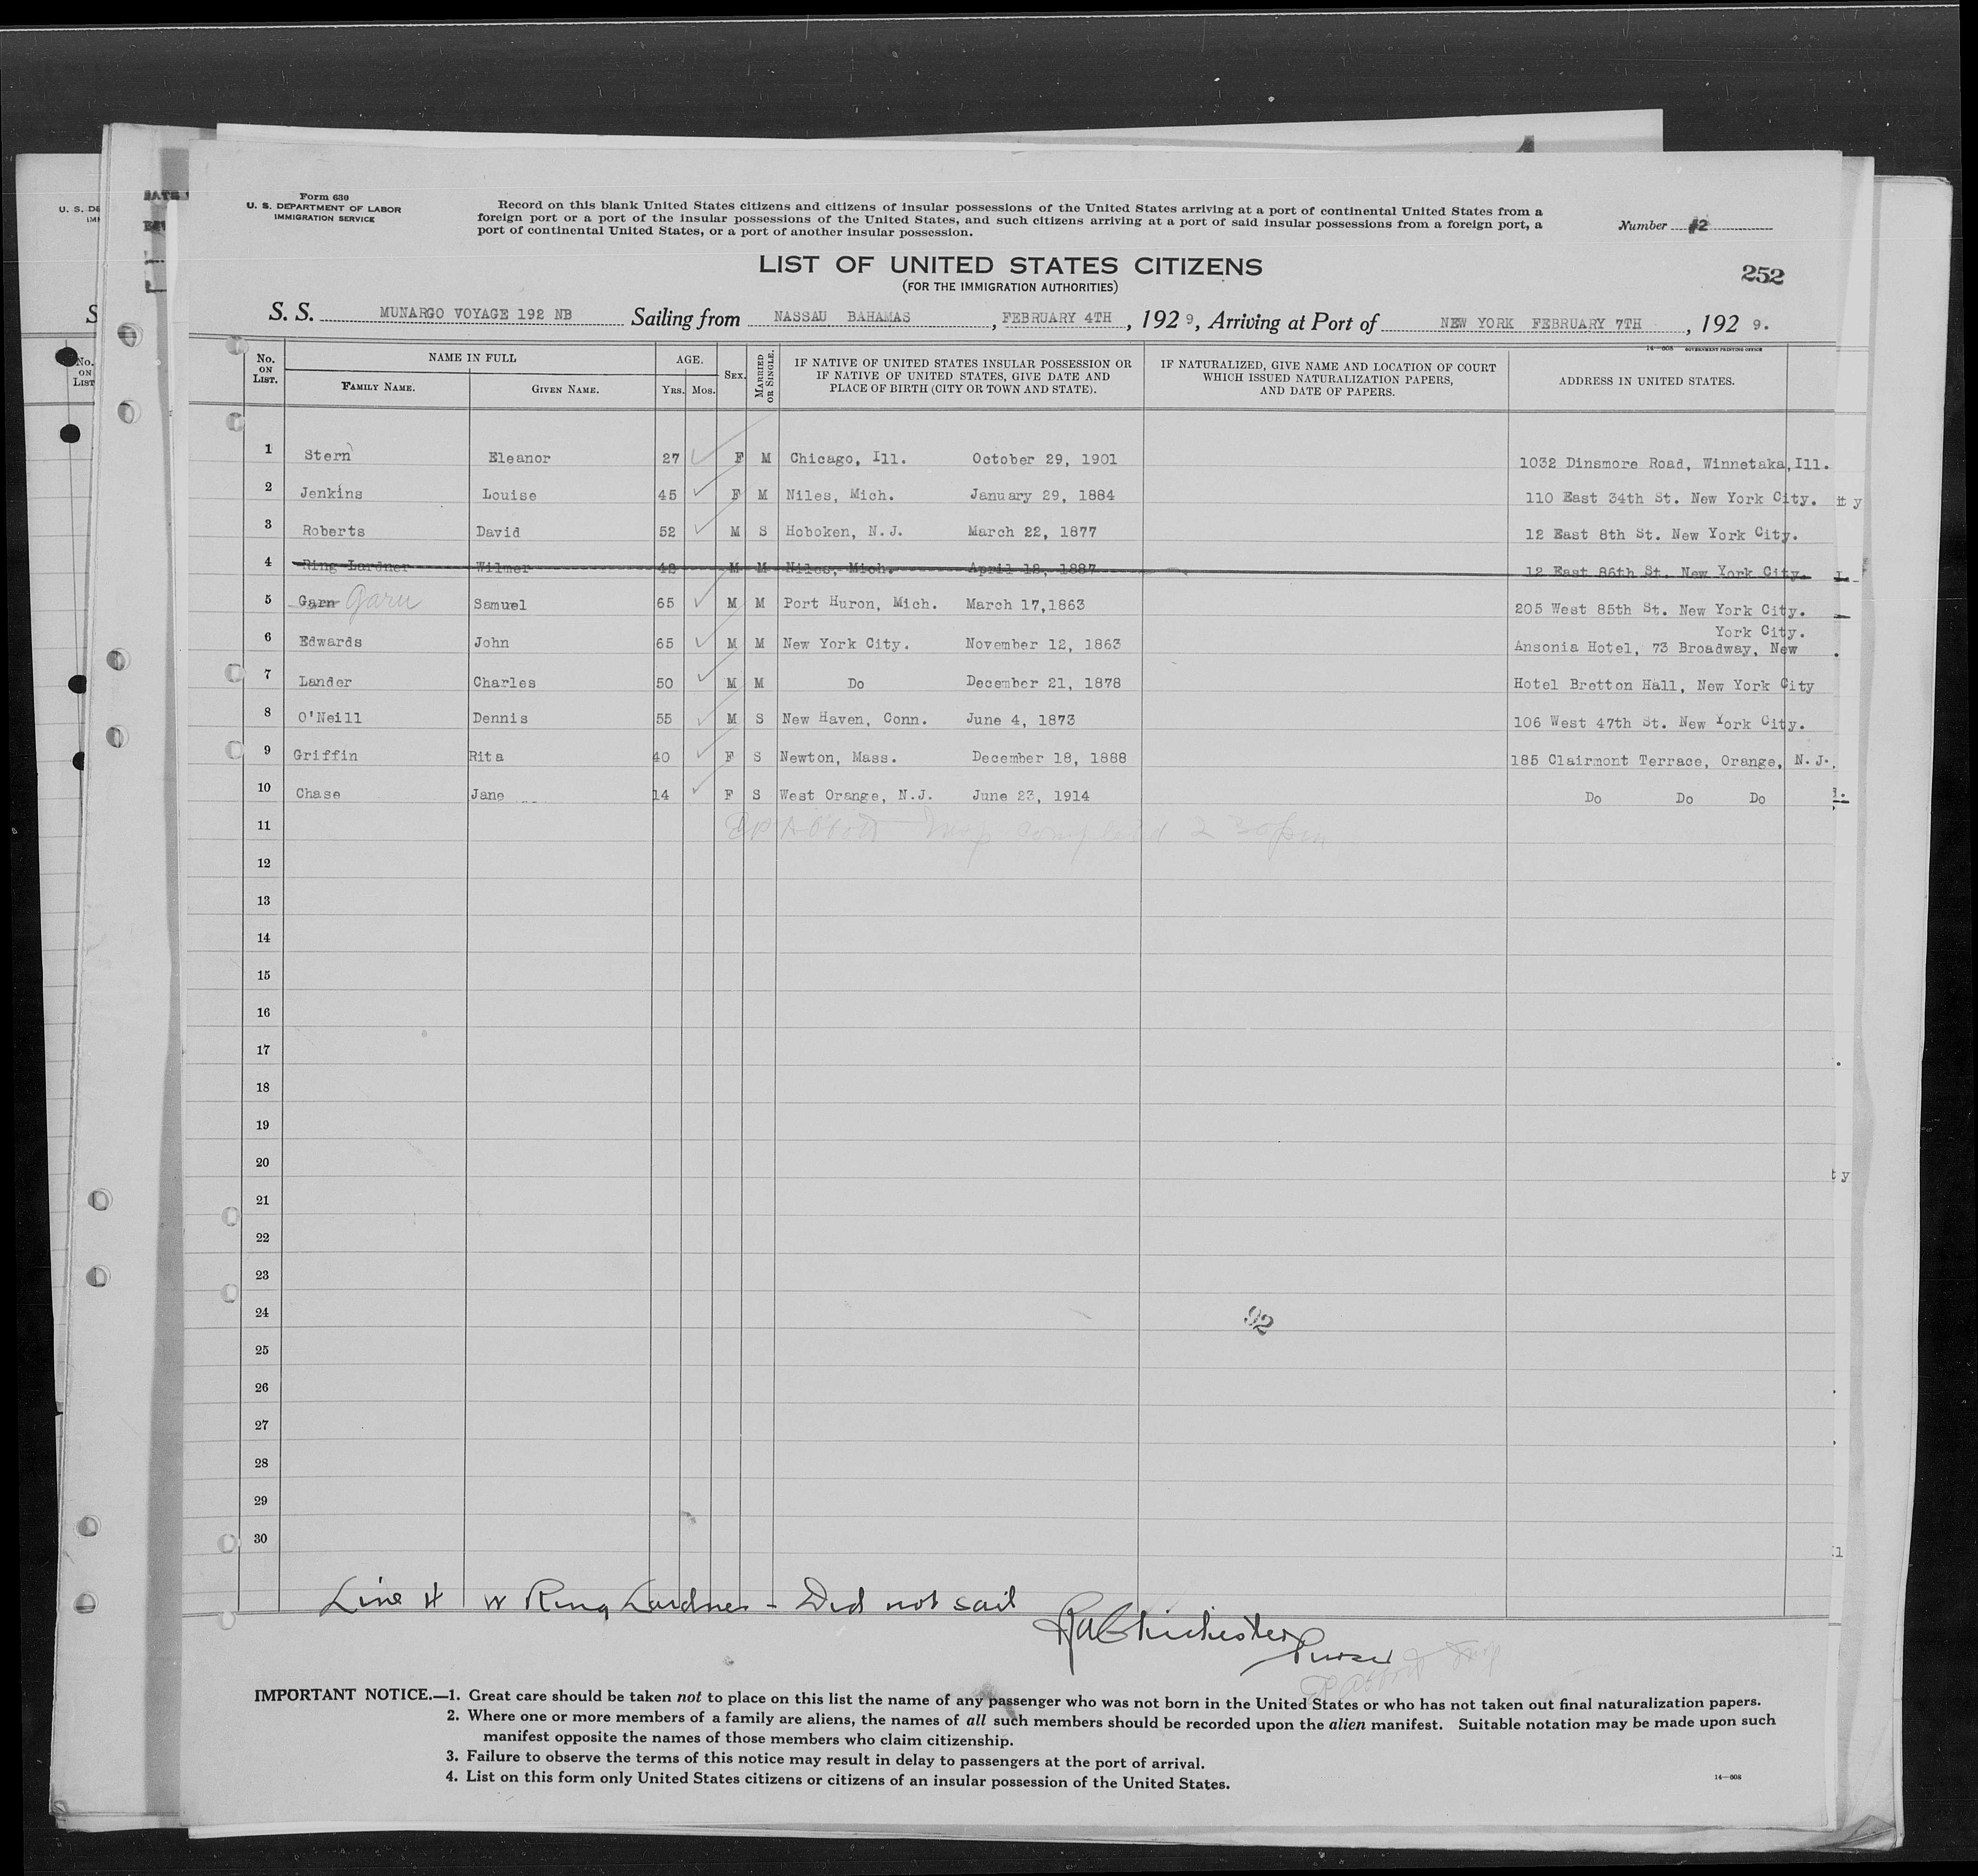 Form 630
U. S. DEPARTMENT OF LABOR
IMMIGRATION SERVICE
Record on this blank United States citizens and citizens of insular possessions of the United States arriving at a port of continental United States from a
foreign port or a port of the insular possessions of the United States, and such citizens arriving at a port of said insular possessions from a foreign port, a
port of continental United States, or a port of another insular possession.
Number #2
LIST OF UNITED STATES CITIZENS
(FOR THE IMMIGRATION AUTHORITIES)
252
S. S. MUNARGO VOYAGE 192 NB Sailing from NASSAU BAHAMAS, FEBRUARY 4TH, 1929, Arriving at Port of NEW YORK FEBRUARY 7TH, 1929.
14—608 GOVERNMENT PRINTING OFFICE
No. ON LIST. NAME IN FULL FAMILY NAME. GIVEN NAME. AGE. Yrs. Mos. SEX. MARRIED OR SINGLE. IF NATIVE OF UNITED STATES INSULAR POSSESSION OR IF NATIVE OF UNITED STATES, GIVE DATE AND PLACE OF BIRTH (CITY OR TOWN AND STATE). IF NATURALIZED, GIVE NAME AND LOCATION OF COURT WHICH ISSUED NATURALIZATION PAPERS, AND DATE OF PAPERS. ADDRESS IN UNITED STATES.
1 Stern Eleanor 27 F M Chicago, Ill. October 29, 1901 1032 Dinsmore Road, Winnetaka, Ill.
2 Jenkins Louise 45 F M Niles, Mich. January 29, 1884 110 East 34th St. New York City.
3 Roberts David 52 M S Hoboken, N.J. March 22, 1877 12 East 8th St. New York City.
4 Ring Lardner Wilmer 42 M M Niles, Mich. April 18, 1887 12 East 86th St. New York City.
5 Garn Garu Samuel 65 M M Port Huron, Mich. March 17,1863 205 West 85th St. New York City.
6 Edwards John 65 M M New York City. November 12, 1863 Ansonia Hotel, 73 Broadway, New York City.
7 Lander Charles 50 M M Do December 21, 1878 Hotel Bretton Hall, New York City
8 O'Neill Dennis 55 M S New Haven, Conn. June 4, 1873 106 West 47th St. New York City.
9 Griffin Rita 40 F S Newton, Mass. December 18, 1888 185 Clairmont Terrace, Orange, N.J.
10 Chase Jane 14 F S West Orange, N.J. June 23, 1914 Do Do Do
11 Insp completed 2 30pm
12
13
14
15
16
17
18
19
20
21
22
23
24
92
25
26
27
28
29
30
Line 4 W Ring Lardner - Did not sail
Chichester
Purser
IMPORTANT NOTICE.—1. Great care should be taken not to place on this list the name of any passenger who was not born in the United States or who has not taken out final naturalization papers.
2. Where one or more members of a family are aliens, the names of all such members should be recorded upon the alien manifest. Suitable notation may be made upon such
manifest opposite the names of those members who claim citizenship.
3. Failure to observe the terms of this notice may result in delay to passengers at the port of arrival.
4. List on this form only United States citizens or citizens of an insular possession of the United States.
14—608